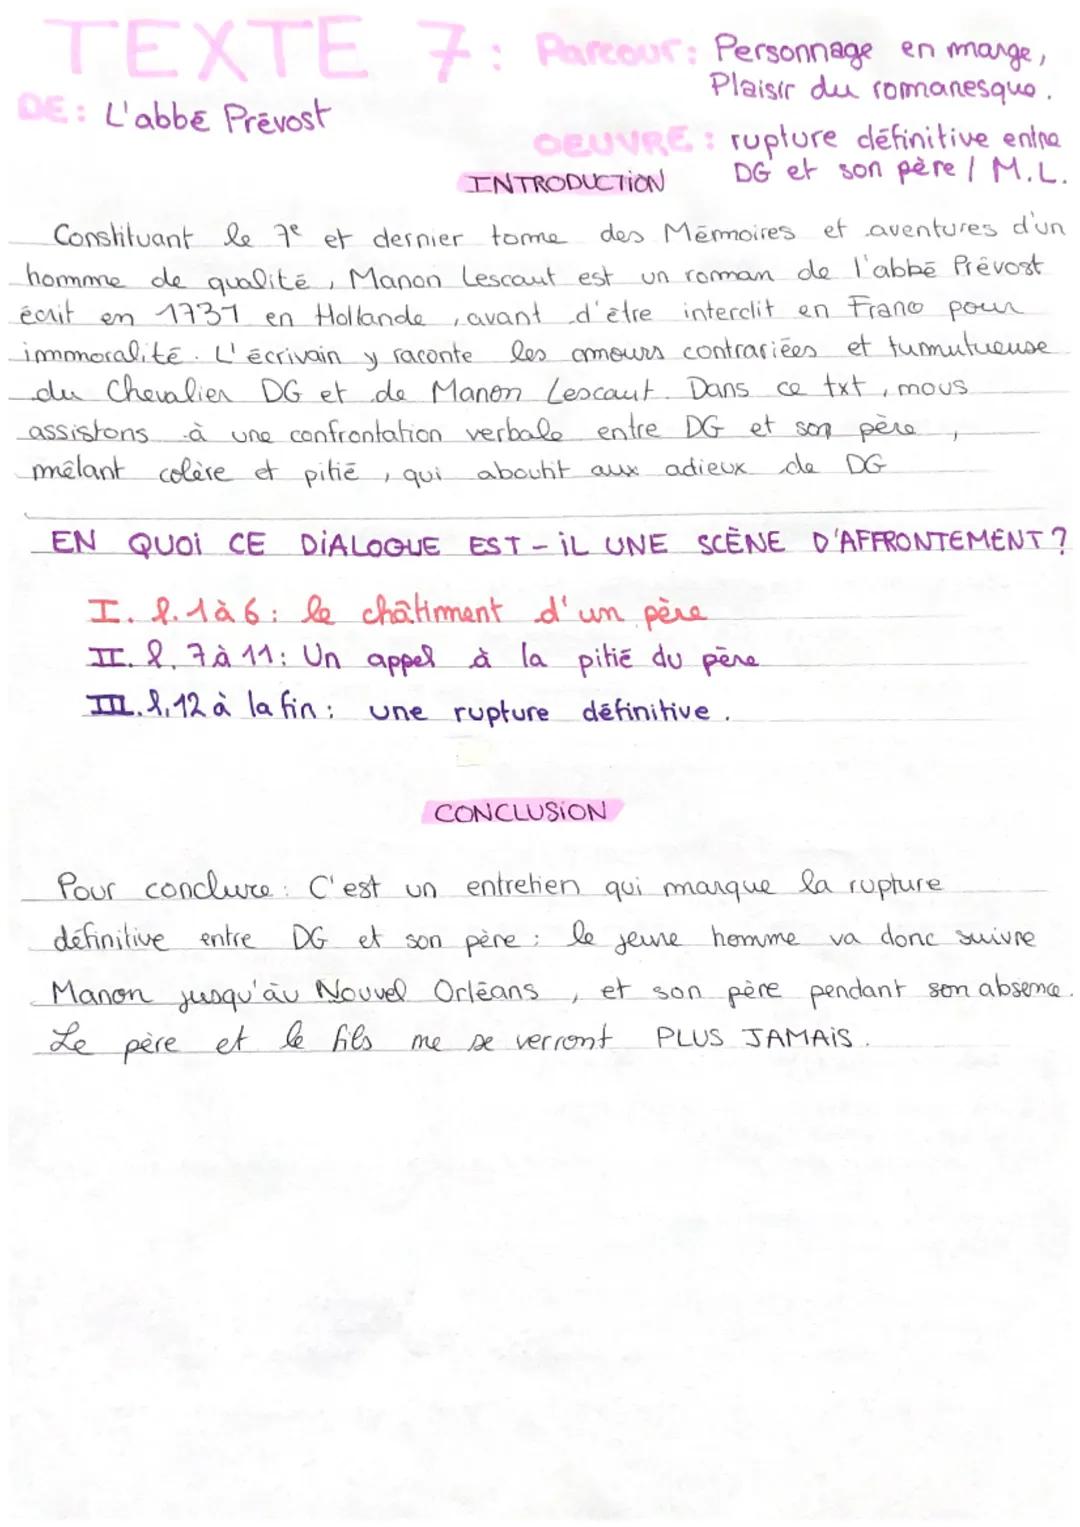 TEXTE 7 : Parcour : Personnage en marge,
Plaisir du romanesque.
DE : L'abbé Prévost
OEUVRE : rupture définitive entre
DG et son père / M.L.
INTRODUCTION
Constituant le 7e et dernier tome des Mémoires et aventures d'un
homme de qualité, Manon Lescaut est un roman de l'abbé Prévost
écrit en 1731 en Hollande, avant d'être interdit en Franc pour
immoralité. L'écrivain y raconte les amours contrariées et tumutueuse
du Chevalier DG et de Manon Lescaut. Dans ce txt, nous
assistons à une confrontation verbale entre DG et son père,
mêlant colère et pitié, qui aboutit aux adieux de DG
EN QUOI CE DIALOGUE EST-IL UNE SCÈNE D'AFFRONTEMENT ?
I. l. 1 à 6 : le châtiment d'un père
II. l. 7 à 11 : Un appel à la pitié du père
III. l. 12 à la fin : une rupture définitive.
CONCLUSION
Pour conclure : C'est un entretien qui marque la rupture
définitive entre DG et son père : le jeune homme va donc suivre
Manon jusqu'àu Nouvel Orléans, et son père pendant son absence.
Le père et le fils ne se verront PLUS JAMAIS.